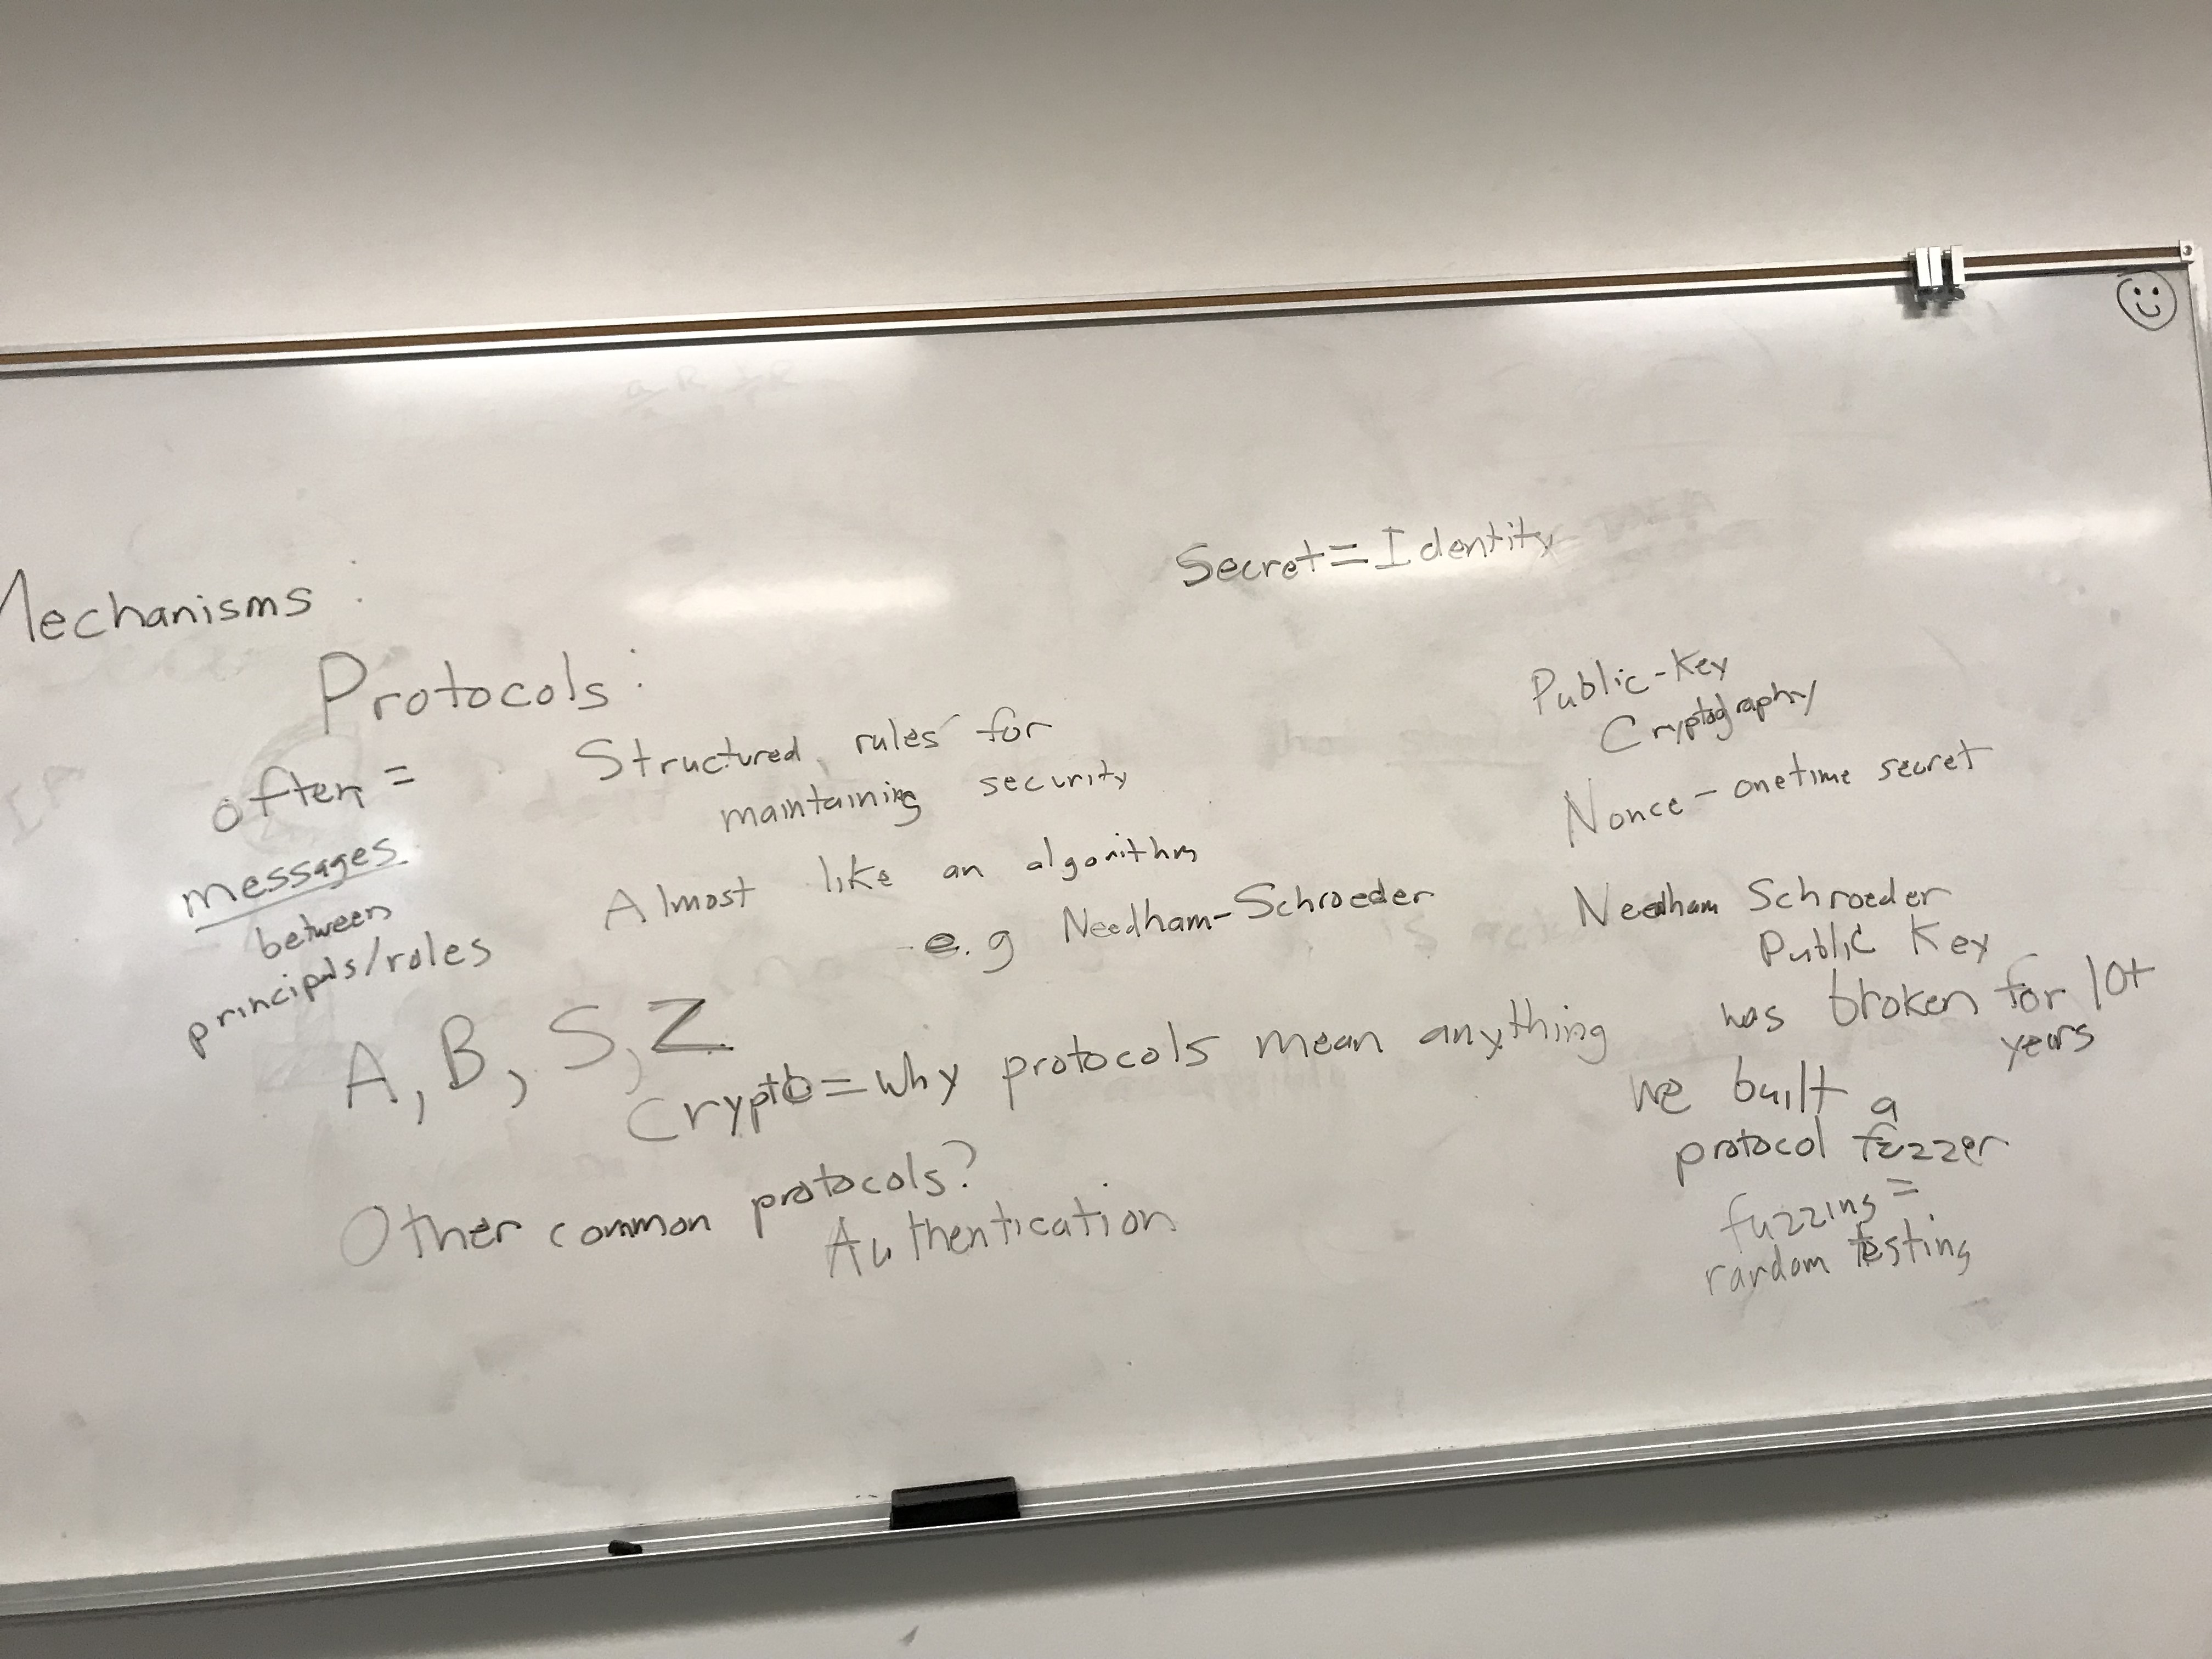 Mechanisms:
Secret = Identity
Protocols:
often =
messages
between
principals/roles
Structured rules for
maintaining security
Almost like an algorithm
- e.g Needham-Schroeder
A, B, S, Z
Crypto = why protocols mean anything
Other common protocols?
Authentication
Public-Key
Cryptography
Nonce - onetime secret
Needham Schroeder
Public Key
was broken for 10+
years
we built a
protocol fuzzer
fuzzing =
random testing